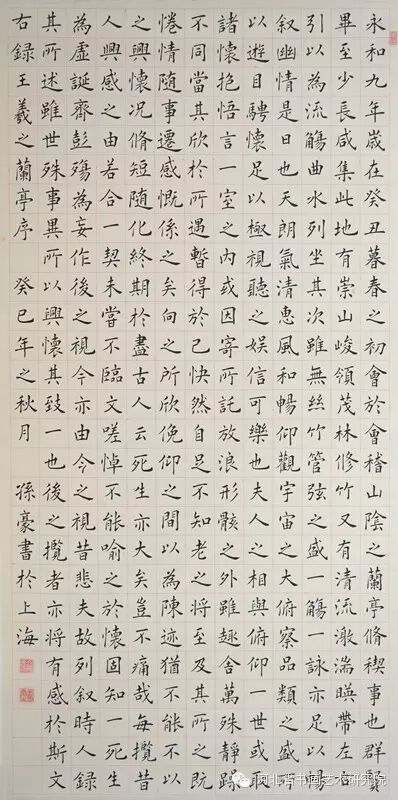 永和九年歲在癸丑暮春之初會於會稽山陰之蘭亭脩禊事也群賢
畢至少長咸集此地有崇山峻領茂林修竹又有清流激湍暎帶左右
引以為流觴曲水列坐其次雖無絲竹管弦之盛一觴一詠亦足以暢
叙幽情是日也天朗氣清惠風和暢仰觀宇宙之大俯察品類之盛所
以遊目騁懷足以極視聽之娛信可樂也夫人之相與俯仰一世或取
諸懷抱悟言一室之內或因寄所託放浪形骸之外雖趣舍萬殊靜躁
不同當其欣於所遇暫得於己快然自足不知老之將至及其所之既
惓情隨事遷感慨係之矣向之所欣俛仰之間以為陳迹猶不能不以
之興懷況脩短隨化終期於盡古人云死生亦大矣豈不痛哉每攬昔
人興感之由若合一契未嘗不臨文嗟悼不能喻之於懷固知一死生
為虛誕齊彭殤為妄作後之視今亦由今之視昔悲夫故列叙時人錄
其所述雖世殊事異所以興懷其致一也後之攬者亦將有感於斯文
右錄王羲之蘭亭序 癸巳年之秋月 孫豪書於上海
河北省书画艺术研究院